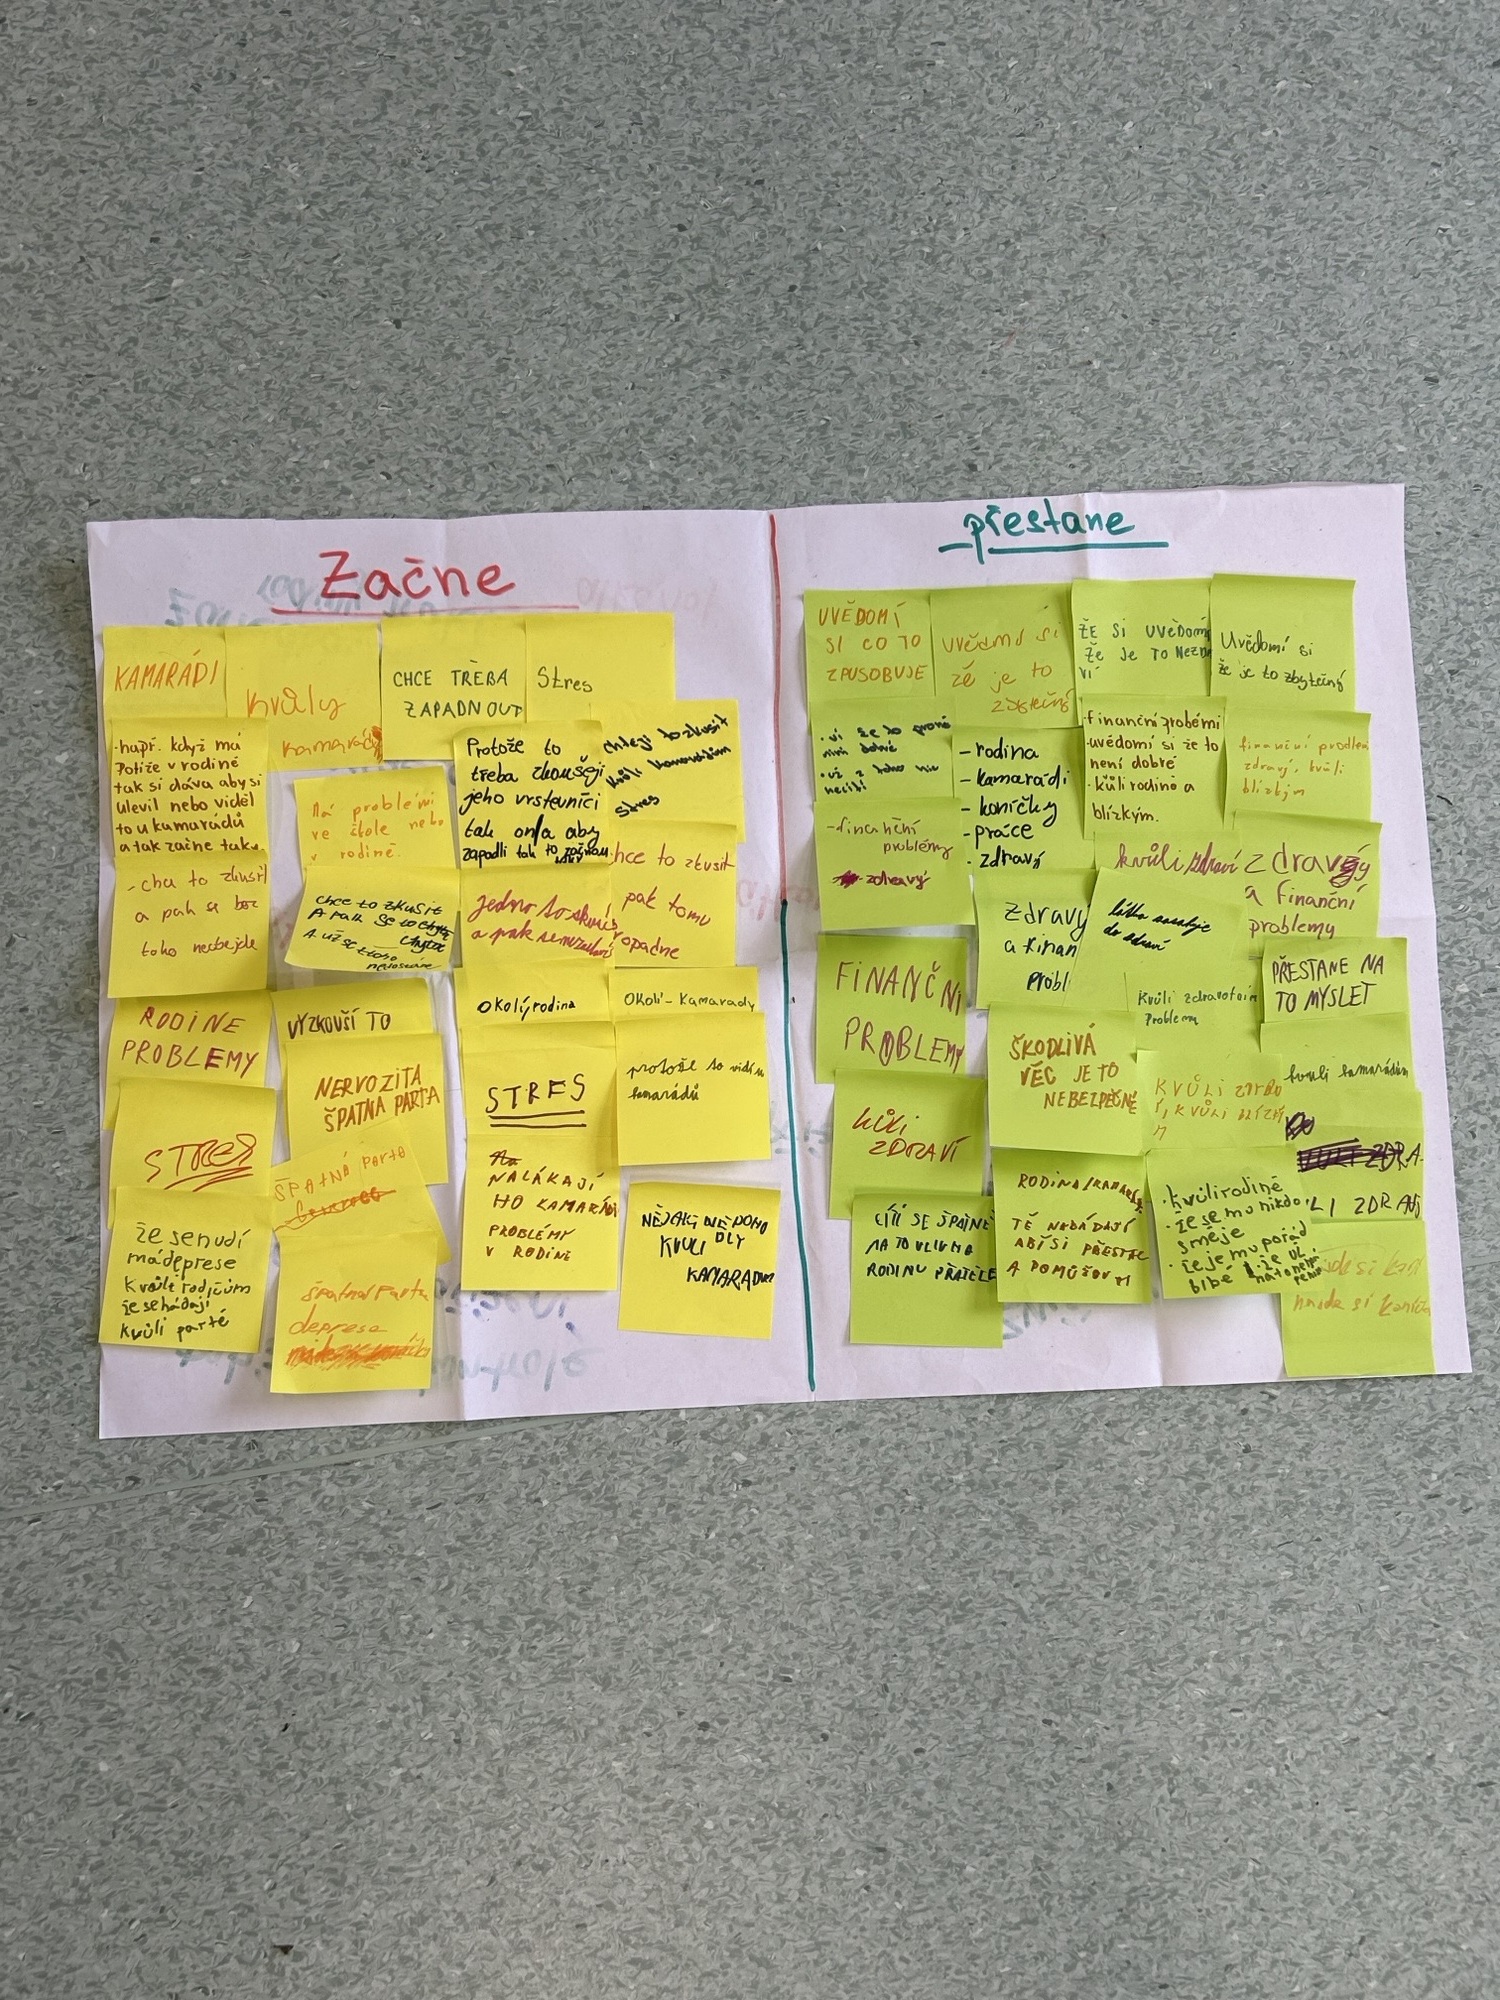 Začne
KAMARÁDI
kvůly
kamarádů
CHCE TŘEBA
ZAPADNOUT
Stres
·např. když ma
Potiže v rodině
tak si dáva aby si
ulevil nebo viděl
to u kamarádů
a tak začne taky.
má problémi
ve škole nebo
v rodině.
Protože to
třeba zkoušejí
jeho vrstevníci
tak on/a aby
zapadli tak to začnou
taky
chtějí to zkusit
kvůli kamarádům
stres
- chce to zkusit
a pak se bez
toho neobejde
chce to zkusit
A pak se to chytn
chytne
A už se z toho
nedostane
jednou to zkusí
a pak
chce to zkusit
pak tomu
propadne
RODINE
PROBLEMY
VYZKOUŠÍ TO
Okolý rodina
Okolí - kamarady
NERVOZITA
ŠPATNA PARTA
STRES
protože to vidí u
kamarádů
STRES
ŠPATNÁ parta
NALÁKAJÍ
HO KAMARÁDI
PROBLÉMY
V RODINĚ
NĚJAKÉ NEPOHO
DLY
KVULI
KAMARADUM
že se nudí
má deprese
kvůli rodičům
že se hádají
kvůli partě
špatna Parta
deprese
přestane
UVĚDOMÍ
SI CO TO
ZPUSOBUJE
uvědomí si
že je to
zbytečný
ŽE SI UVĚDOMÍ
ŽE JE TO NEZDRA
VÍ
Uvědomí si
že je to zbytečný
· ví že to pro ně
není dobré
· už z toho nic
necítí
- rodina
- kamarádi
- koníčky
- práce
- zdravý
·finanční probémi
·uvědomí si že to
není dobré
·kůli rodině a
blízkým.
finanční problém
zdraví, kvůli
blízkým
- finanční
problémy
- zdravý
kvůli zdraví
zdravý
a finanční
problemy
Zdravy
a finan
probl
látka zasahuje
do zdraví
FINANČNI
PROBLEMY
Kvůli zdravotním
Problemu
PŘESTANE NA
TO MYSLET
ŠKODLIVÁ
VĚC JE TO
NEBEZPEČNÉ
KVŮLI ZDRAV
Í, KVŮLI BLÍZKÝ
M
kvuli kamarádům
kůli
ZDRAVÍ
ZDRA
LI ZDRAVÍ
CÍTÍ SE ŠPATNĚ
MA TO VLIV NA
RODINU PŘÁTELE
RODINA/KAMARÁDI
TĚ NABÁDAJÍ
ABÍ SI PŘESTAL
A POMŮŽOU TI
· kvůli rodině
· že se mu nikdo
směje
· že je mu pořád
blbě
· že už
na to nepří
jde si kon
najde si koníčka